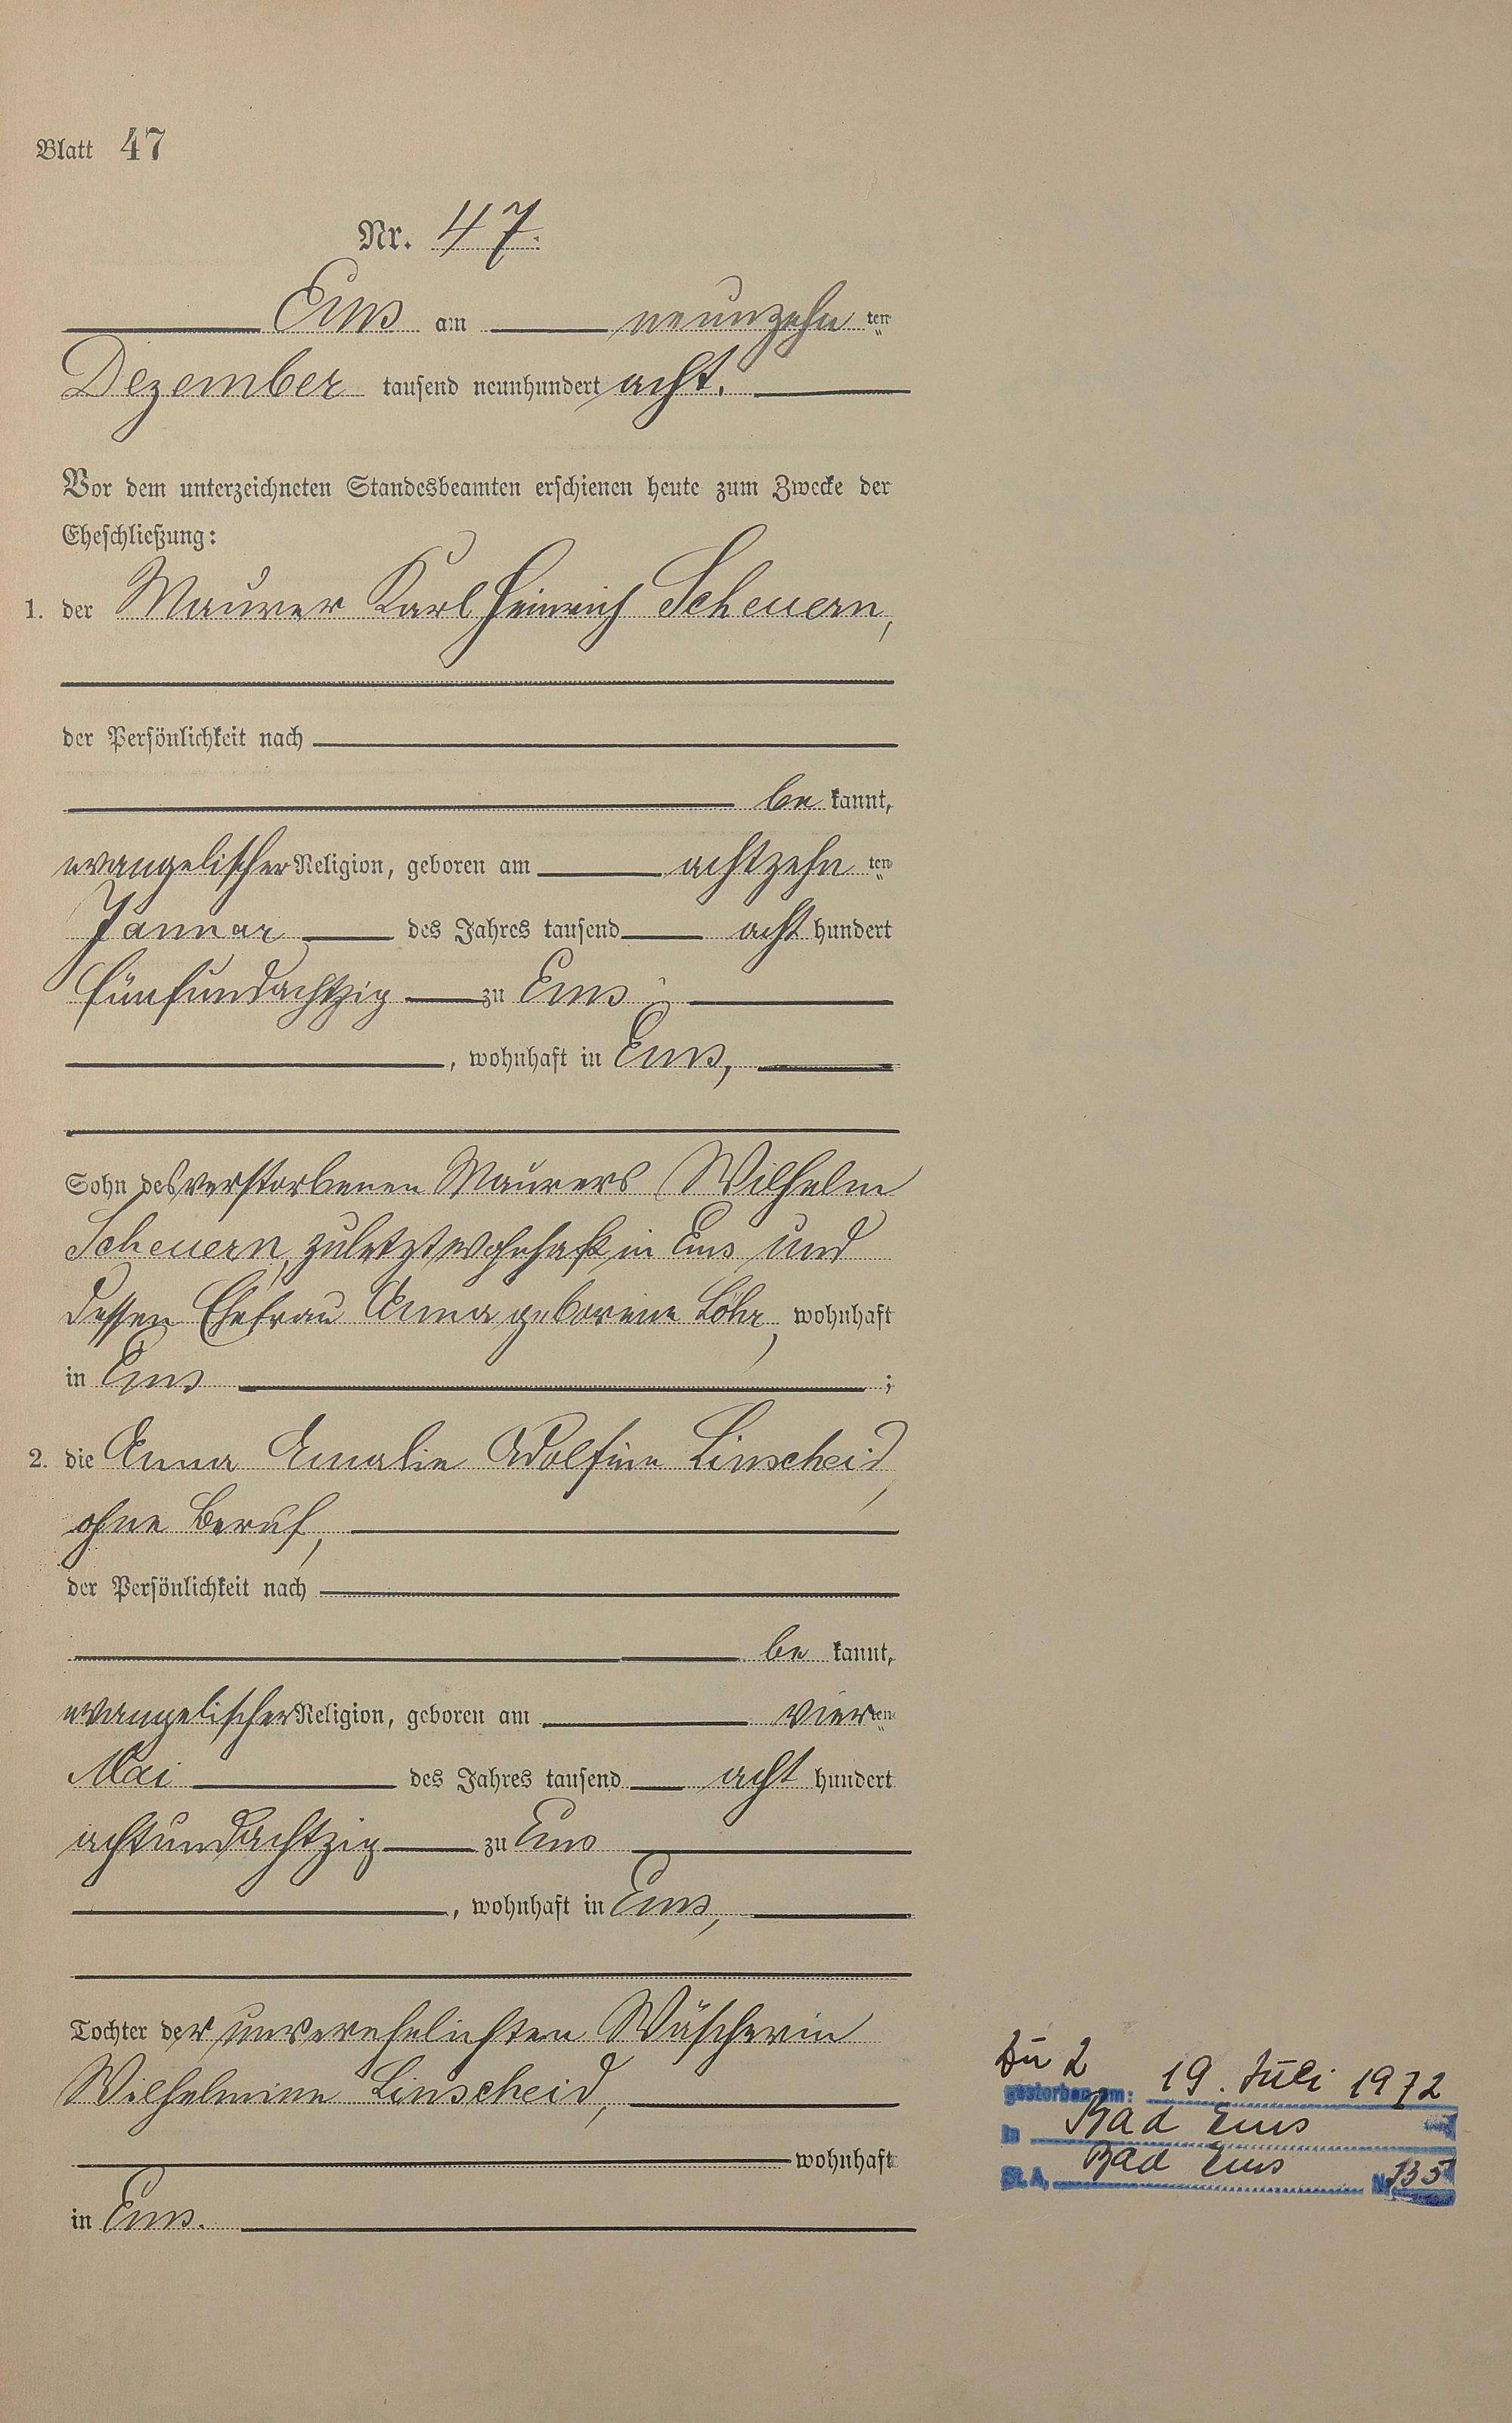 Blatt 47
Nr. 47.
Ems am neunzehnten
Dezember tausend neunhundert acht.
Vor dem unterzeichneten Standesbeamten erschienen heute zum Zwecke der
Eheschließung:
1. der Maurer Karl Heinrich Scheuern,
der Persönlichkeit nach
be kannt,
evangelischer Religion, geboren am achtzehn ten
Januar des Jahres tausend acht hundert
fünfundachtzig zu Ems
, wohnhaft in Ems,
Sohn des verstorbenen Maurers Wilhelm
Scheuern, zuletzt wohnhaft in Ems und
dessen Ehefrau Anna geborene Löhr, wohnhaft
in Ems ;
2. die Anna Emalie Adolfine Linscheid,
ohne Beruf,
der Persönlichkeit nach
be kannt,
evangelischer Religion, geboren am vierten
Mai des Jahres tausend acht hundert
achtundachtzig zu Ems
, wohnhaft in Ems,
Tochter der unverehelichten Wäscherin
Wilhelmine Linscheid,
wohnhaft
in Ems.
Zu 2
gestorben am: 19. Juli 1972
in Bad Ems
St. A. Bad Ems Nr 135